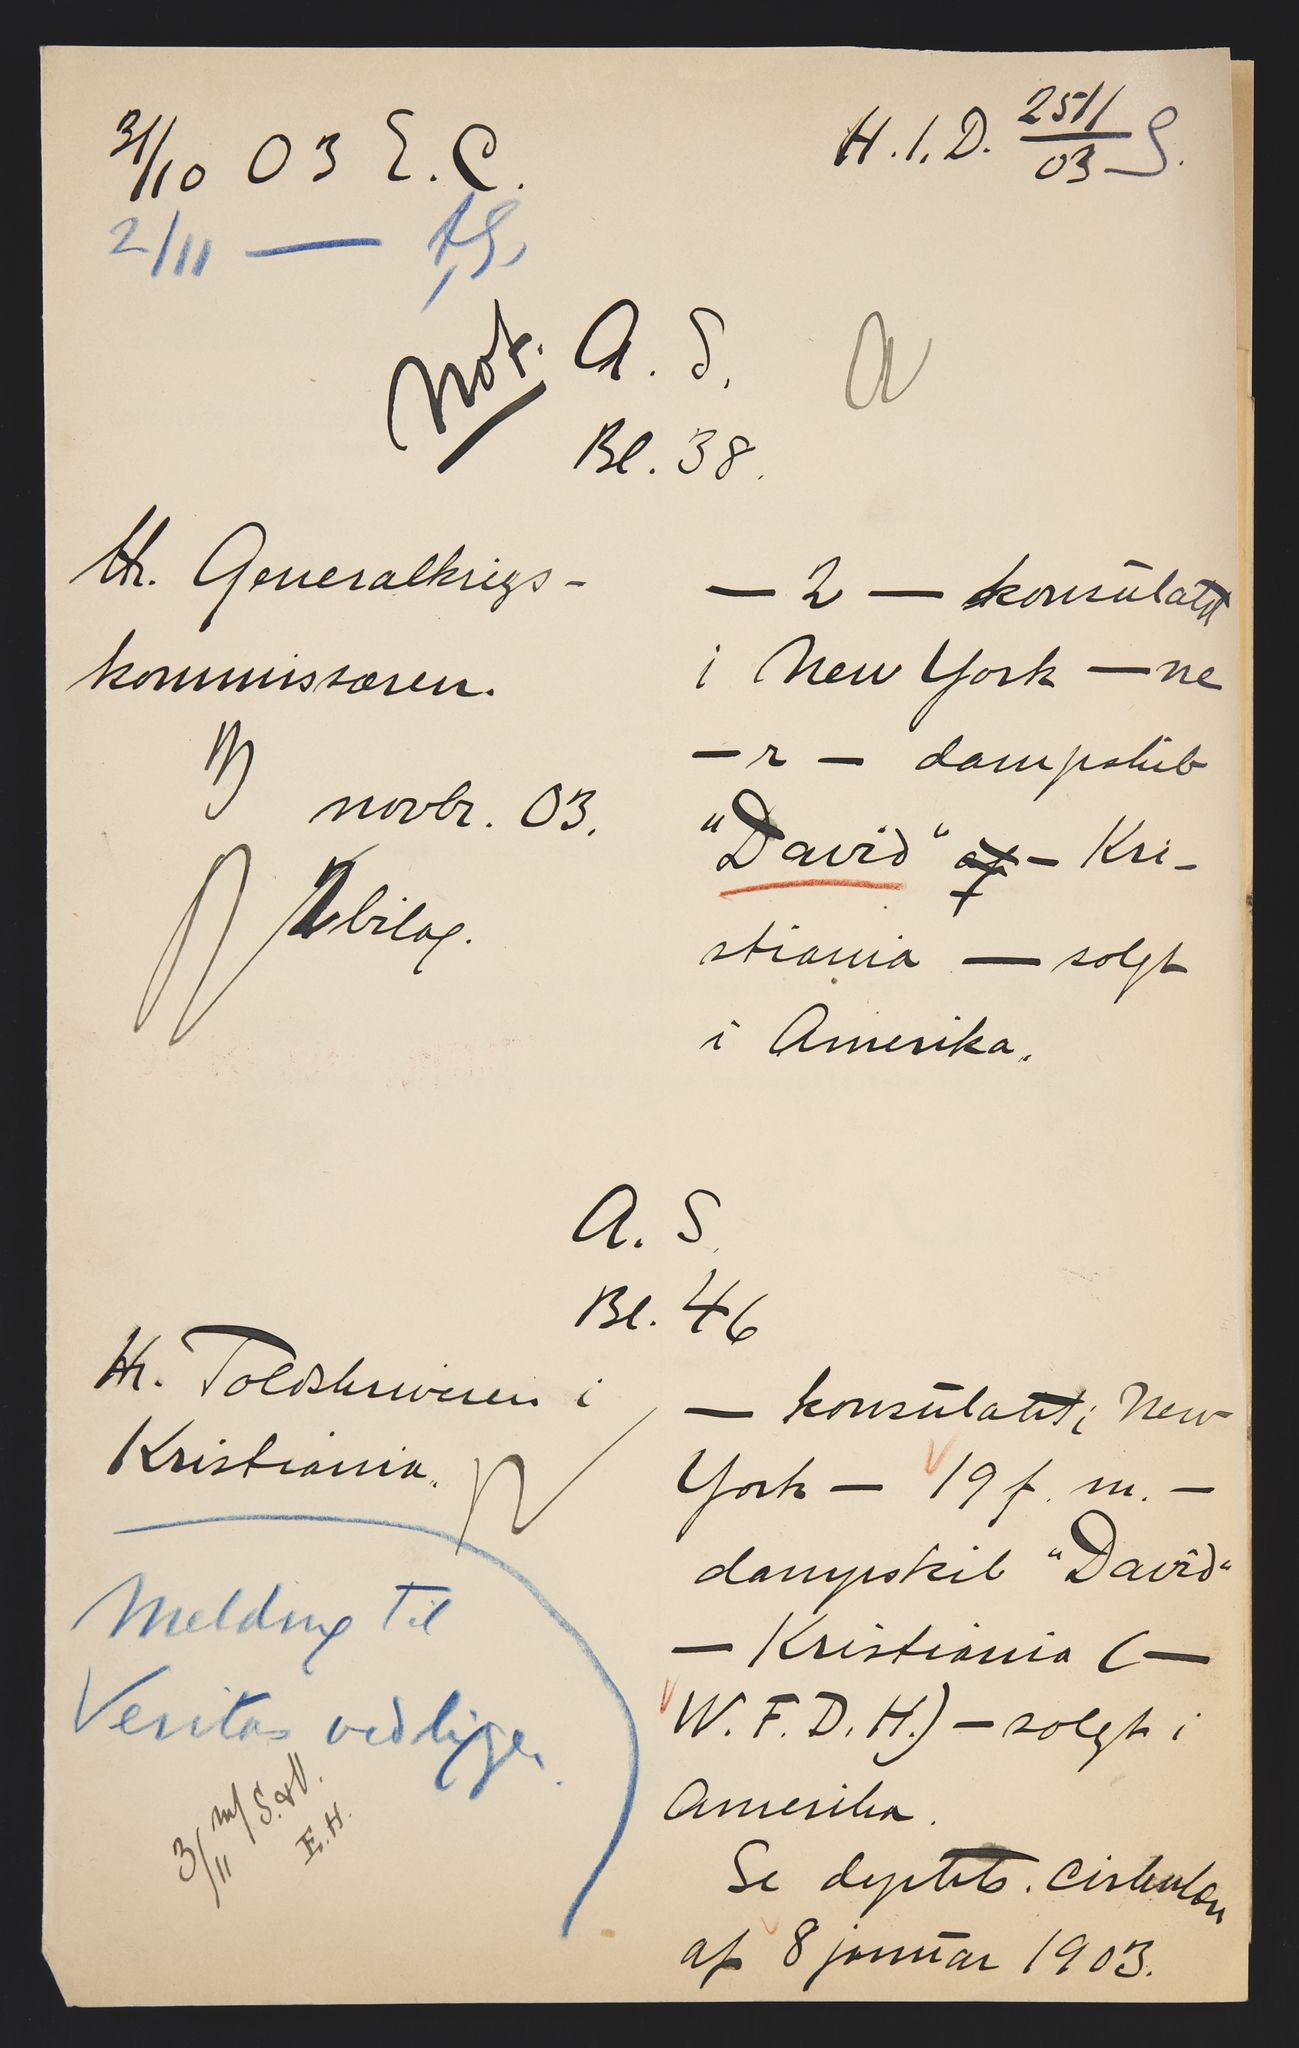 31/10 03 E. C.
H. I. D. 2511/03 S.
2/11 —
Not. A. S. a
Bl. 38.
Hr. Generalkrigs-
kommissæren.
novbr. 03.
2 bilag.
— 2 — konsulatet
i New York — ne
— r — dampskib
"David" af — Kri-
stiania — solgt
i Amerika.
A. S.
Bl. 46
Hr. Toldskriveren i
Kristiania.
Melding til
Veritas vedlige.
3/11
E. H.
— konsulatet i New
York — 19 f. m. —
dampskib "David"
— Kristiania (—
W. F. D. H.) — solgt i
Amerika.
Se deptets. cirkulær
af 8 januar 1903.